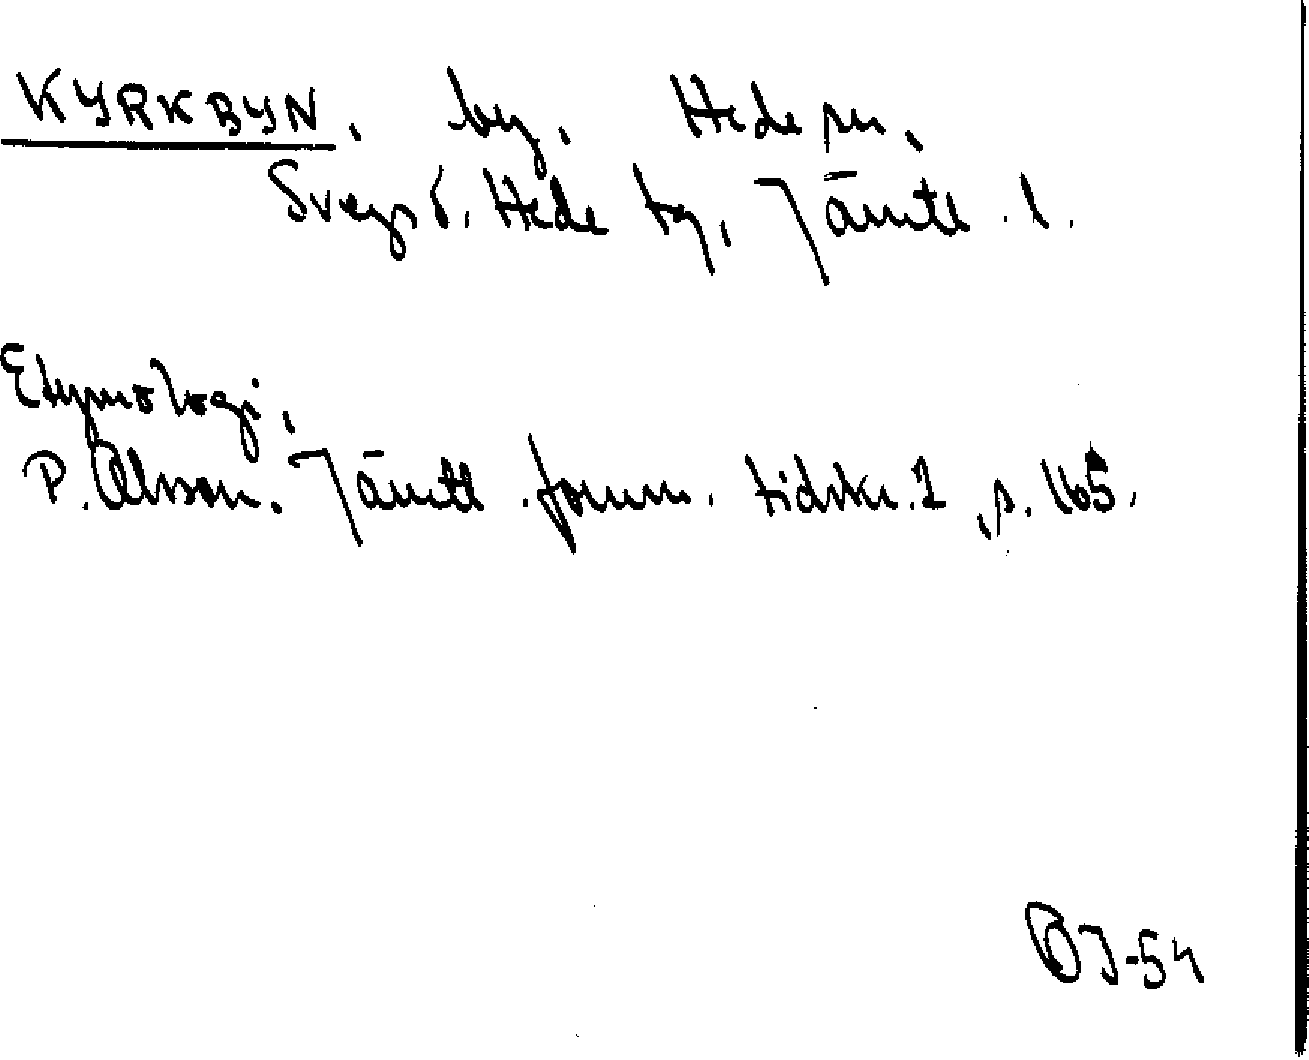 KYRKBYN, by, Hede sn,
Svegs d. Hede tg, Jämtl. l.
Etymologi,
P. Olsson. Jämtl. fornm. tidskr. 1, s. 165.
OJ-54